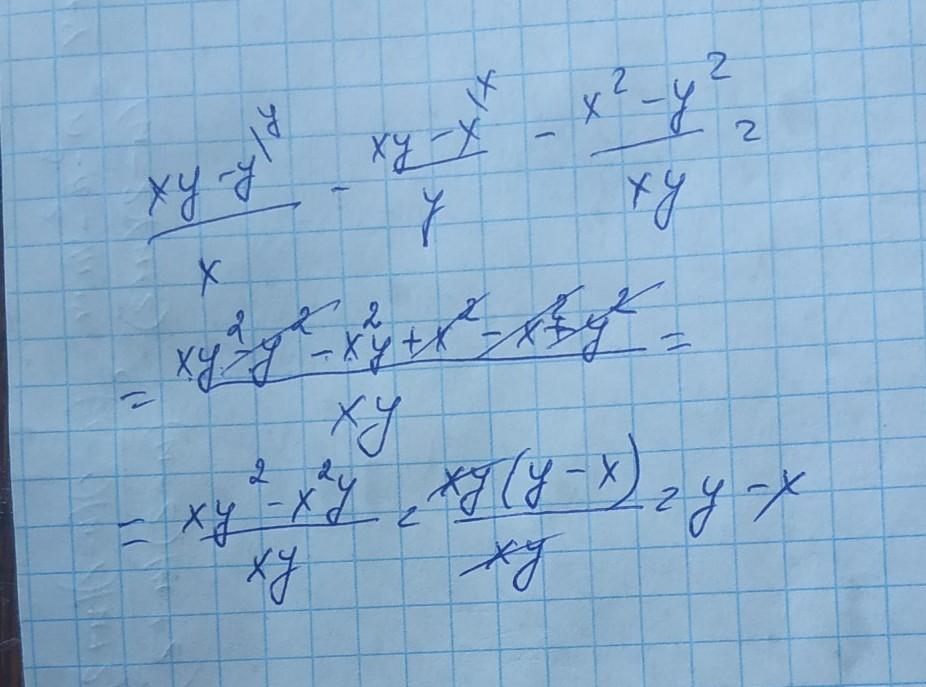 (xy - y \y)/x - (xy - x \x)/y - (x² - y²)/xy =
= (xy² - y² - x²y + x² - x² + y²)/xy =
= (xy² - x²y)/xy = (xy(y - x))/xy = y - x